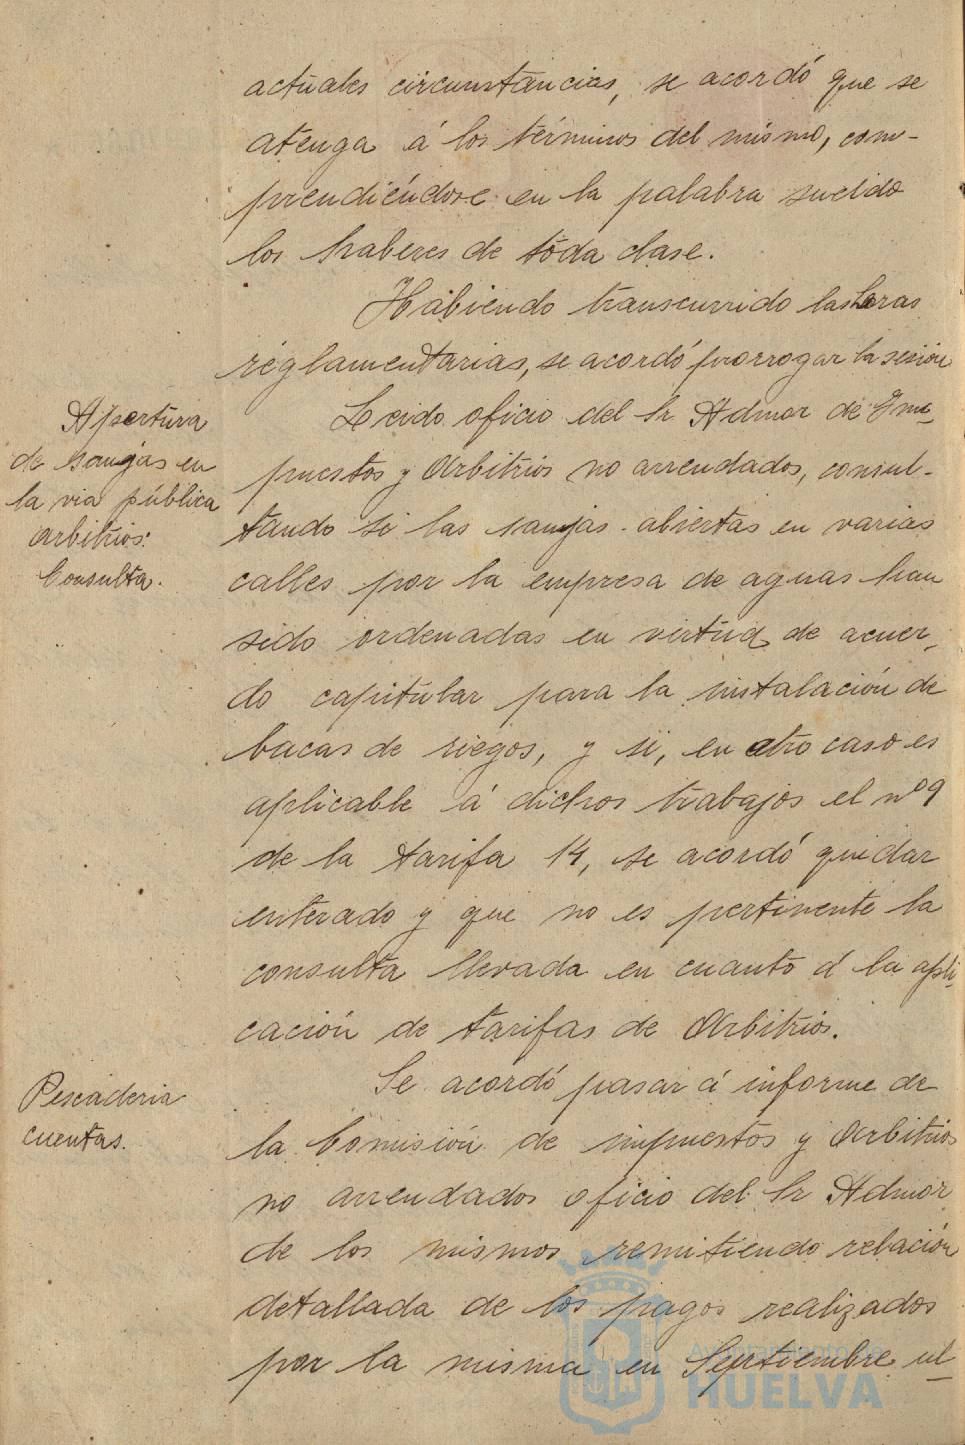 actuales circunstancias, se acordó que se
atenga á los términos del mismo, com-
prendiéndose en la palabra sueldo
los haberes de toda clase.
Habiendo transcurrido las horas
reglamentarias, se acordó prorrogar la sesión
Apertura
de sanjas en
la via pública
arbitrios:
Consulta.
Leido oficio del Sr Admor de Im-
puestos y Arbitrios no arrendados, consul-
tando si las sanjas abiertas en varias
calles por la empresa de aguas han
sido ordenadas en virtud de acuer-
do capitular para la instalación de
bacas de riegos, y si, en otro caso es
aplicable á dichos trabajos el nº 9
de la tarifa 14, se acordó quedar
enterado y que no es pertinente la
consulta llevada en cuanto á la apli-
cación de tarifas de Arbitrios.
Pescaderia
cuentas.
Se acordó pasar á informe de
la Comisión de impuestos y Arbitrios
no arrendados oficio del Sr Admor
de los mismos remitiendo relación
detallada de los pagos realizados
por la misma en Septiembre ul-
Ayuntamiento de
HUELVA